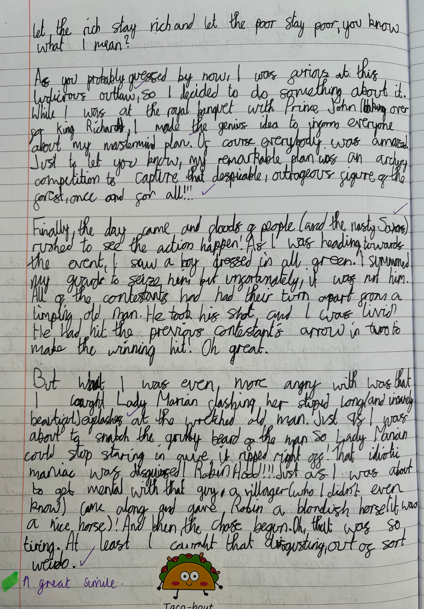 let the rich stay rich and let the poor stay poor, you know
what I mean?
As you probably guessed by now, I was furious at this
ludicrous outlaw, so I decided to do something about it.
While I was at the royal banquet with Prince John (taking over
for King Richard), I made the genius idea to inform everyone
about my mastermind plan. Of course everybody was amazed.
Just to let you know, my remarkable plan was an archery
competition to capture that despicable, outrageous figure of the
forest, once and for all!!!
Finally, the day came and clouds of people (and the nasty Saxons)
rushed to see the action happen! As I was heading towards
the event, I saw a boy dressed in all green. I summoned
my guards to seize him but unfortunately, it was not him.
All of the contestants had had their turn apart from a
limping old man. He took his shot, and I was livid!
He had hit the previous contestant's arrow in two to
make the winning hit! Oh great.
But what I was even more angry with was that
I caught Lady Marian flashing her stupid long (and insanely
beautiful) eyelashes at the wretched old man. Just as I was
about to snatch the grubby beard of the man so Lady Marian
could stop staring in awe, it ripped right off! That idiotic
maniac was disguised! Robin Hood!!! Just as I was about
to get mental with that guy, a villager (who I didn't even
know) came along and gave Robin a blondish horse (it was
a nice horse)! And then the chase began. Oh, that was so
tiring. At least I caught that disgusting, out of sort
weirdo.
A great simile.
Taco-bout